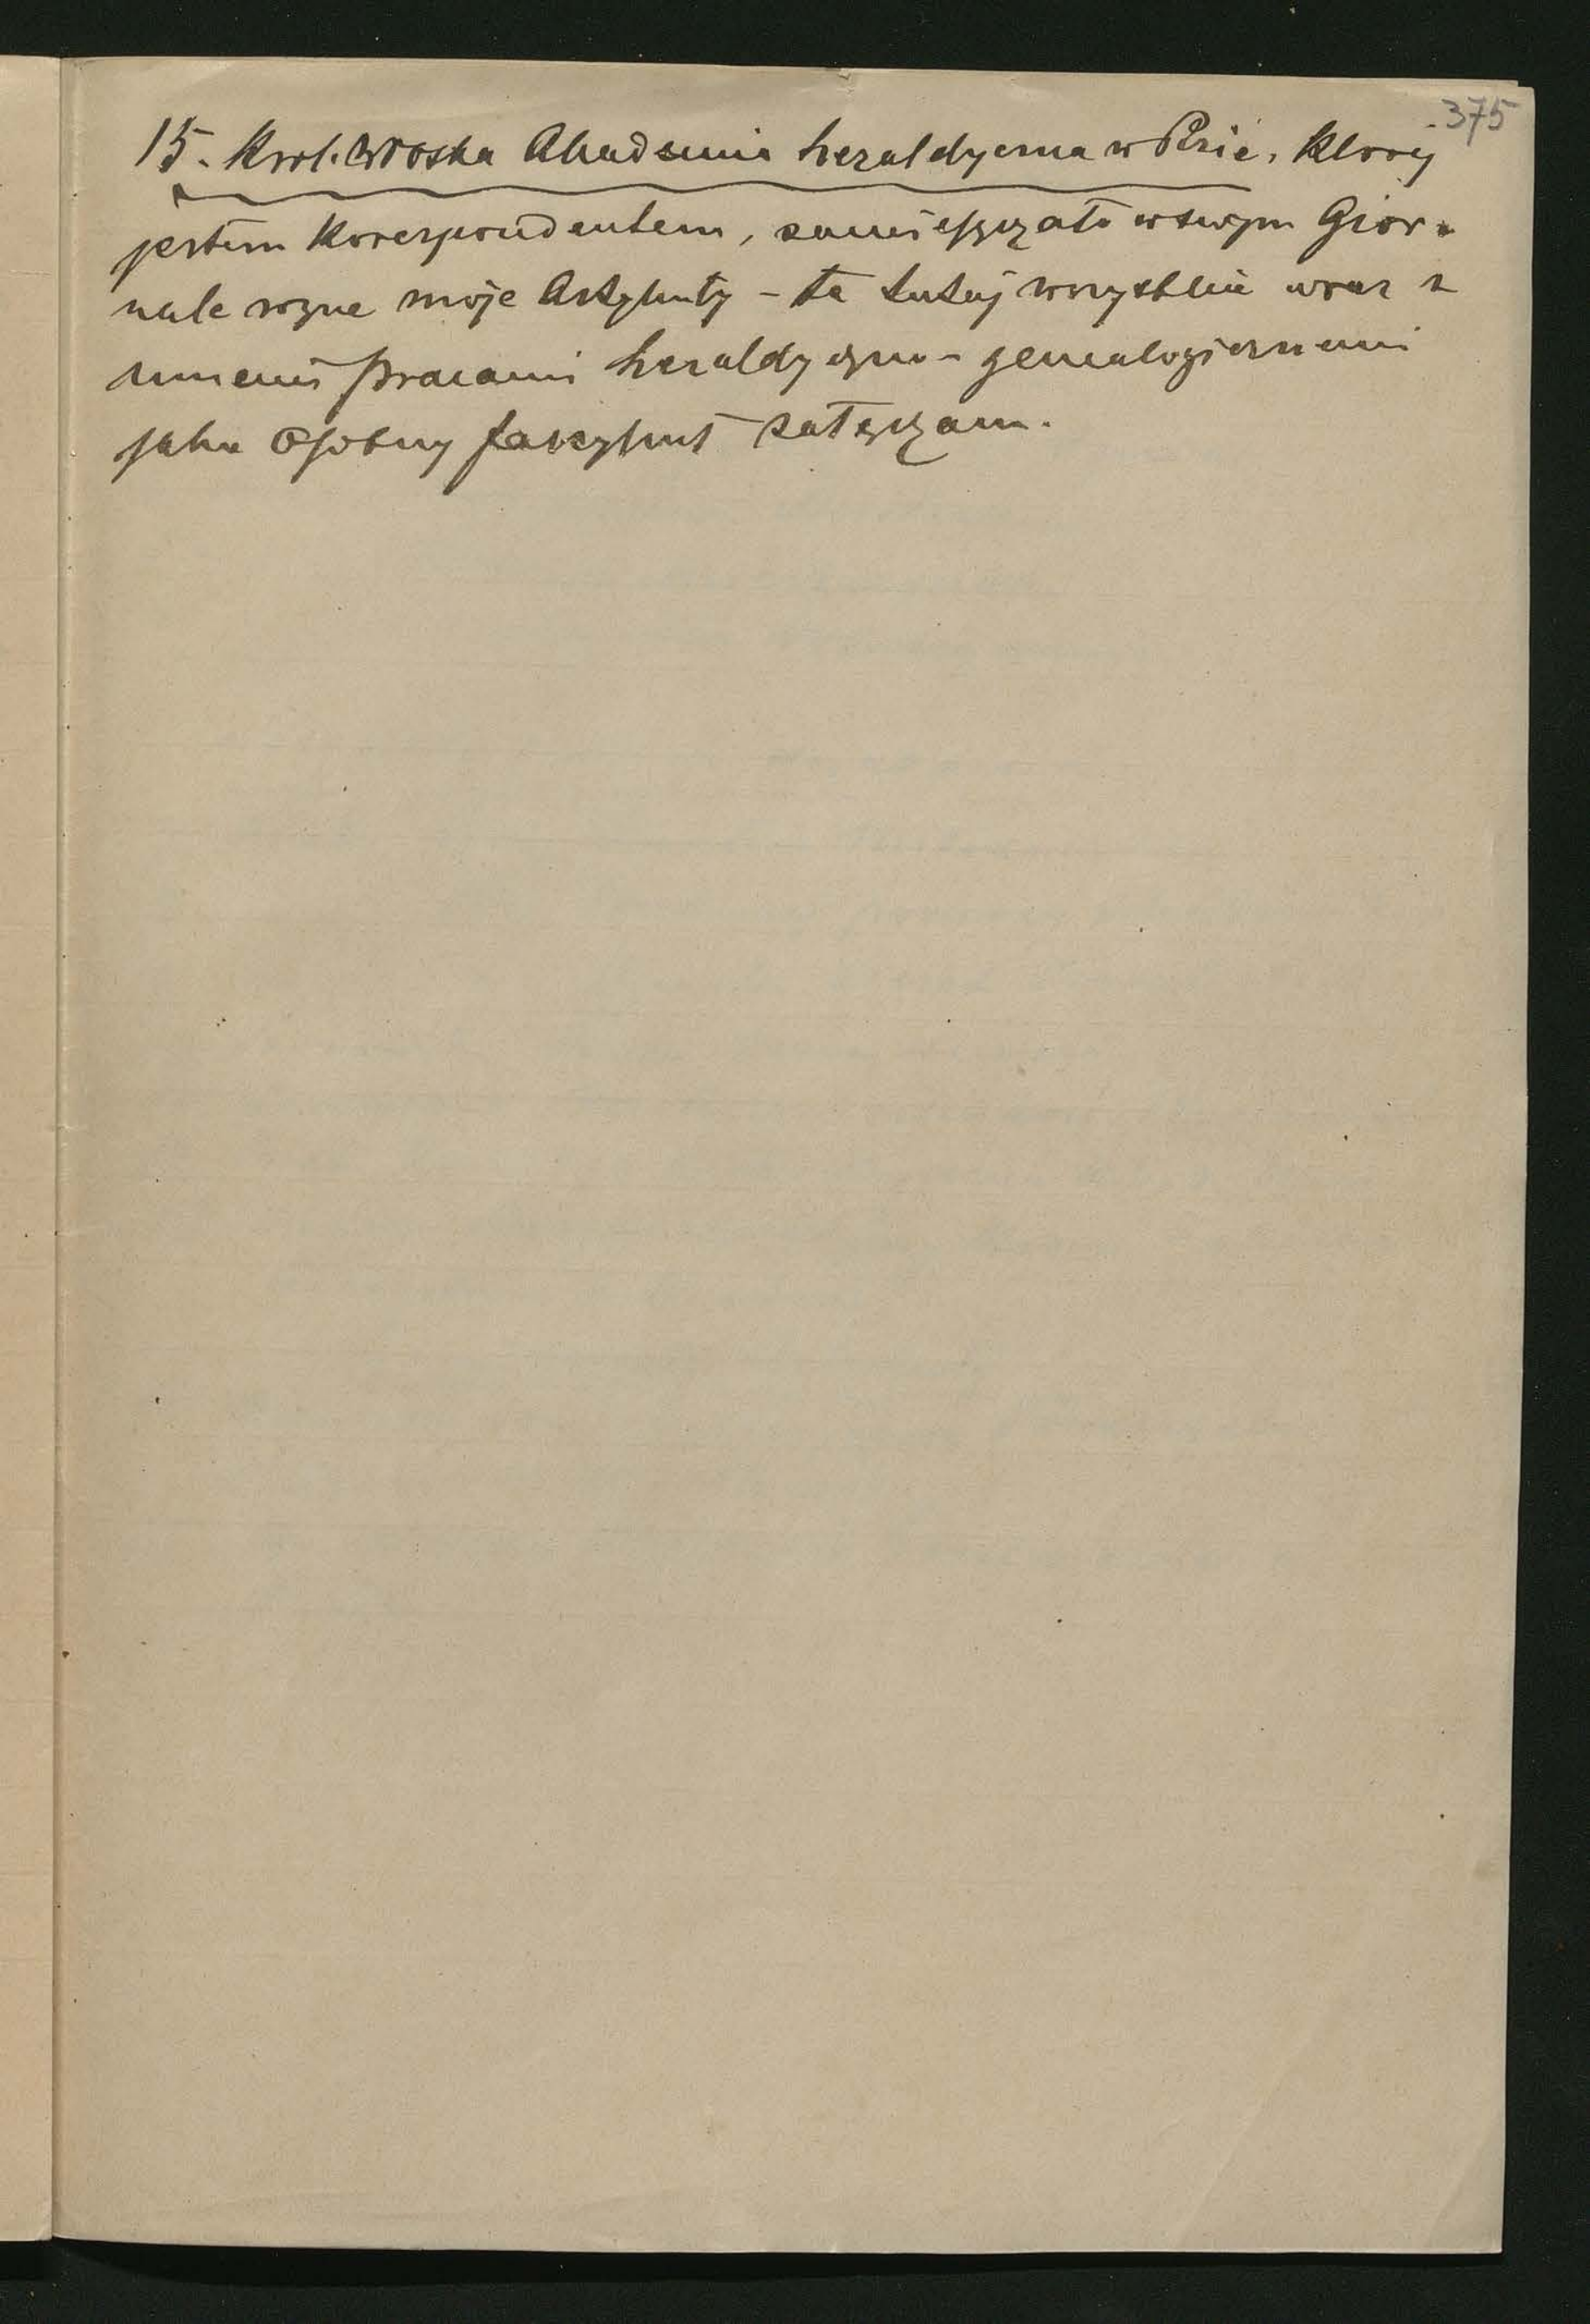 375
15. Król. Włoska Akademia heraldyczna w Pizie, której
jestem Korespondentem, zamieszczała w swym Gior-
nale rożne moje Artykuły – te tutaj wszystkie wraz z
innemi pracami heraldyczno-genealogicznemi
jako Osobny faszykuł załączam.